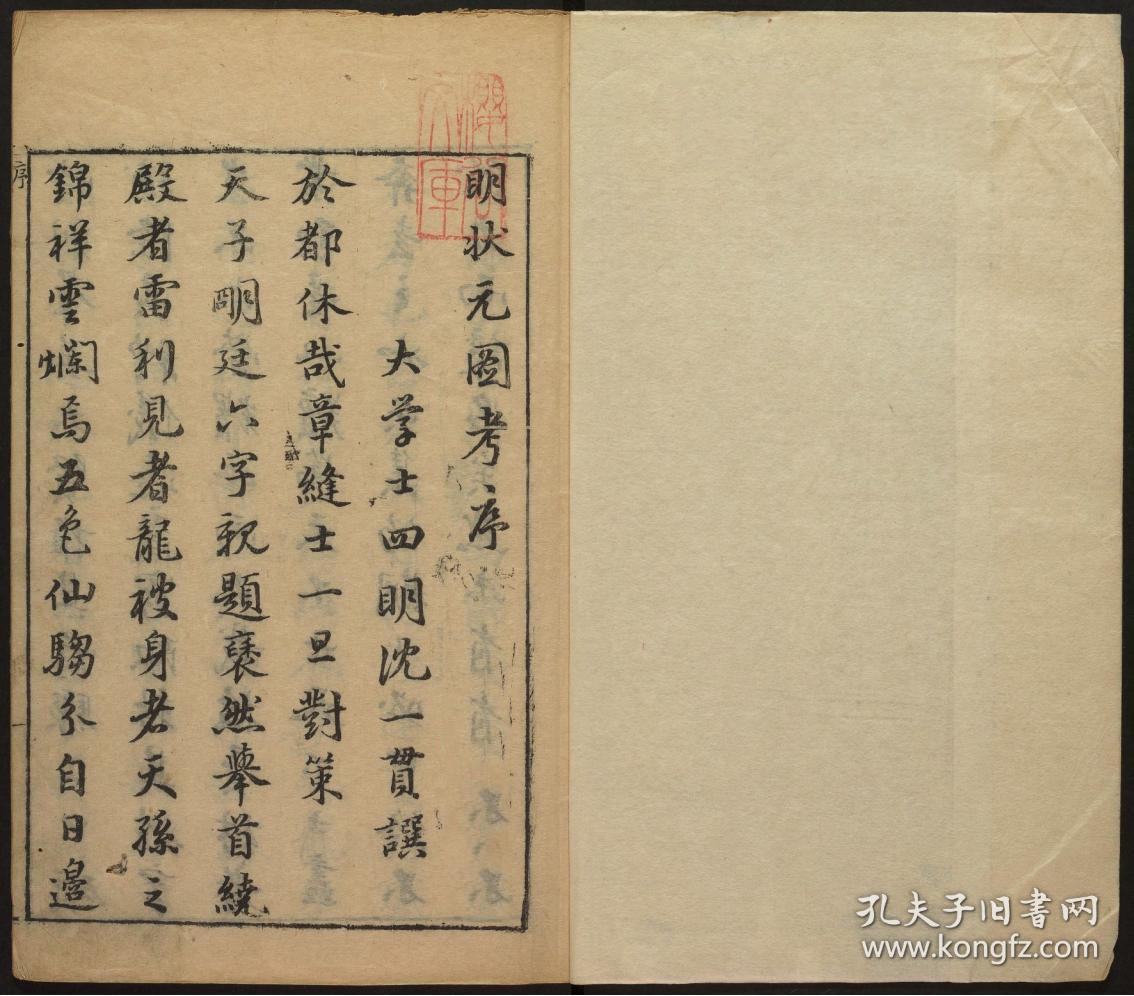 明狀元圖考序
大学士四明沈一貫譔
於都休哉章縫士一旦對策
天子明廷六字親題褎然舉首繞
殿者雷利見者龍被身者天孫之
錦祥雲爛焉五色仙騶分自日邊
序
孔夫子旧书网
www.kongfz.com